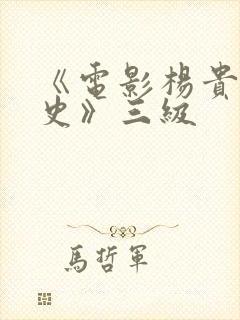 《電影楊貴
史》三級
馬哲軍